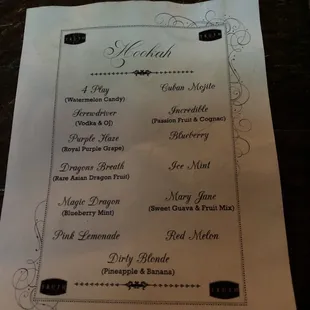 Hookah
4 Play
(Watermelon Candy)
Cuban Mojito
Screwdriver
(Vodka & OJ)
Incredible
(Passion Fruit & Cognac)
Purple Haze
(Royal Purple Grape)
Blueberry
Dragons Breath
(Rare Asian Dragon Fruit)
Ice Mint
Magic Dragon
(Blueberry Mint)
Mary Jane
(Sweet Guava & Fruit Mix)
Pink Lemonade
Red Melon
Dirty Blonde
(Pineapple & Banana)